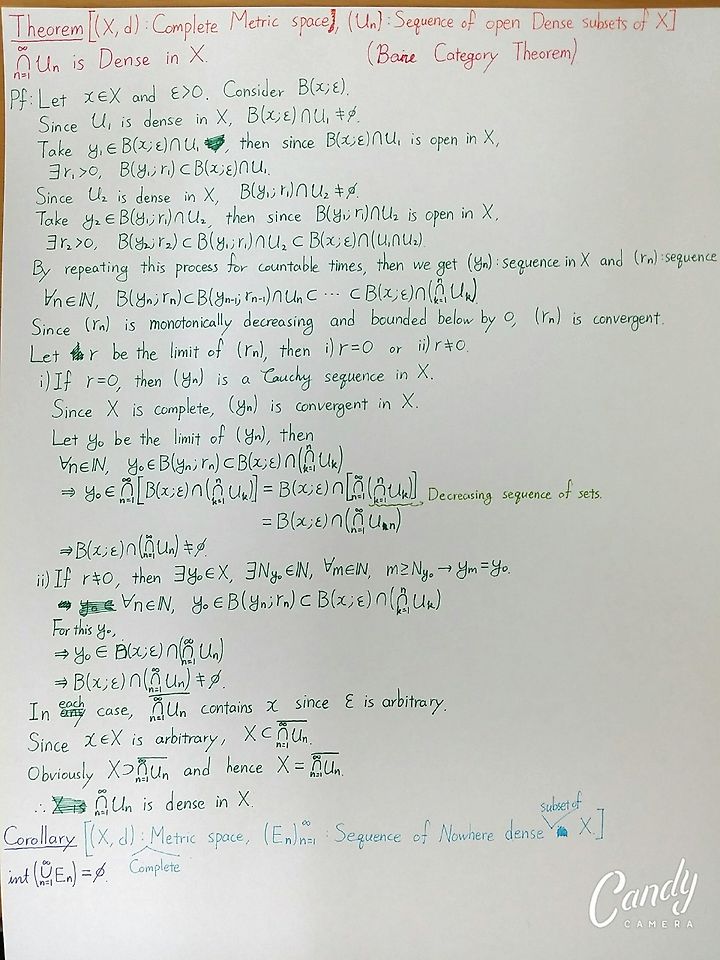 Theorem [(X, d) : Complete Metric space], (Un) : Sequence of open Dense subsets of X]
∞∩n=1 Un is Dense in X. (Baire Category Theorem)
Pf : Let x∈X and ε>0. Consider B(x;ε).
Since U₁ is dense in X, B(x;ε)∩U₁ ≠∅.
Take y₁∈B(x;ε)∩U₁, then since B(x;ε)∩U₁ is open in X,
∃r₁>0, B(y₁;r₁)⊂B(x;ε)∩U₁.
Since U₂ is dense in X, B(y₁;r₁)∩U₂ ≠∅.
Take y₂∈B(y₁;r₁)∩U₂, then since B(y₁;r₁)∩U₂ is open in X,
∃r₂>0, B(y₂;r₂)⊂B(y₁;r₁)∩U₂⊂B(x;ε)∩(U₁∩U₂).
By repeating this process for countable times, then we get (yn) : sequence in X and (rn) : sequence
∀n∈ℕ, B(yn;rn)⊂B(yn-1;rn-1)∩Un⊂ ⋯ ⊂B(x;ε)∩(n∩k=1 Uk)
Since (rn) is monotonically decreasing and bounded below by 0, (rn) is convergent.
Let r be the limit of (rn), then i) r=0 or ii) r≠0.
i) If r=0, then (yn) is a Cauchy sequence in X.
Since X is complete, (yn) is convergent in X.
Let y₀ be the limit of (yn), then
∀n∈ℕ, y₀∈B(yn;rn)⊂B(x;ε)∩(n∩k=1 Uk)
⇒ y₀∈ ∞∩n=1 [B(x;ε)∩(n∩k=1 Uk)] = B(x;ε)∩[∞∩n=1 (n∩k=1 Uk)] Decreasing sequence of sets.
= B(x;ε)∩(∞∩n=1 Un)
⇒B(x;ε)∩(∞∩n=1 Un) ≠∅.
ii) If r≠0, then ∃y₀∈X, ∃Ny₀∈ℕ, ∀m∈ℕ, m≥Ny₀ → ym=y₀.
∀n∈ℕ, y₀∈B(yn;rn)⊂B(x;ε)∩(n∩k=1 Uk)
For this y₀,
⇒ y₀∈ B(x;ε)∩(∞∩n=1 Un)
⇒ B(x;ε)∩(∞∩n=1 Un) ≠∅.
In each case, ‾∞∩n=1 Un‾ contains x since ε is arbitrary.
Since x∈X is arbitrary, X⊂‾∞∩n=1 Un‾.
Obviously X⊃‾∞∩n=1 Un‾ and hence X=‾∞∩n=1 Un‾.
∴ ∞∩n=1 Un is dense in X.
Corollary [(X, d) : Complete Metric space, (En)∞n=1 : Sequence of Nowhere dense subset of X.]
int(∞∪n=1 En) =∅.
Candy
CAMERA